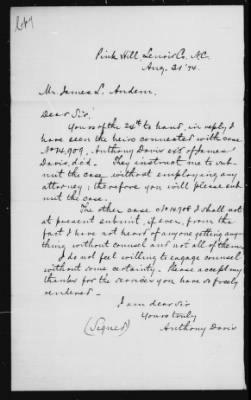 Pink Hill Lenoir Co. N.C.
Aug. 31 '74.
Mr. James L. Andem.
Dear Sir:
Yours of the 24th to hand, in reply I
have seen the heirs connected with case
No 14,909, Anthony Davis exr of James
Davis, dc'd. They instruct me to sub-
mit the case without employing any
attorney; therefore you will please sub-
mit the case.
The other case I shall not
at present submit, if ever, from the
fact I have not heard of anyone getting any-
thing without counsel and not all of them.
I do not feel willing to engage counsel
without some certainty. Please accept my
thanks for the services you have so freely
rendered.
I am dear Sir
Yours truly
(Signed) Anthony Davis